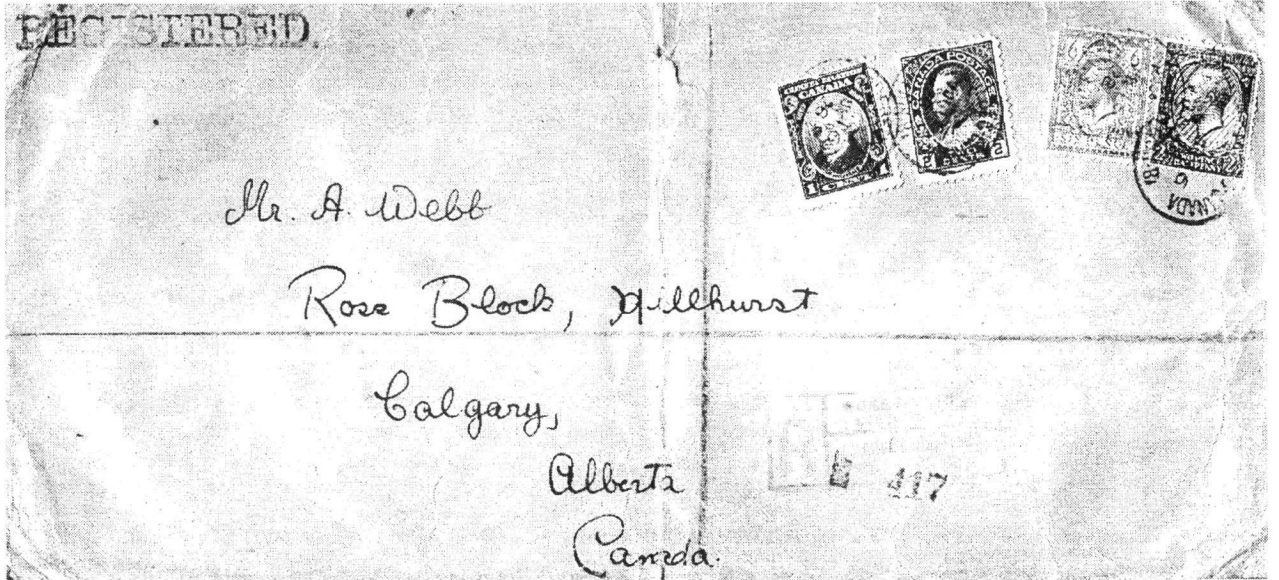 REGISTERED.
CANADA
1 CENT 1
CANADA POSTAGE
2 CENTS 2
Mr. A. Webb
Ross Block, Hillhurst
Calgary,
Alberta
Canada.
R
417